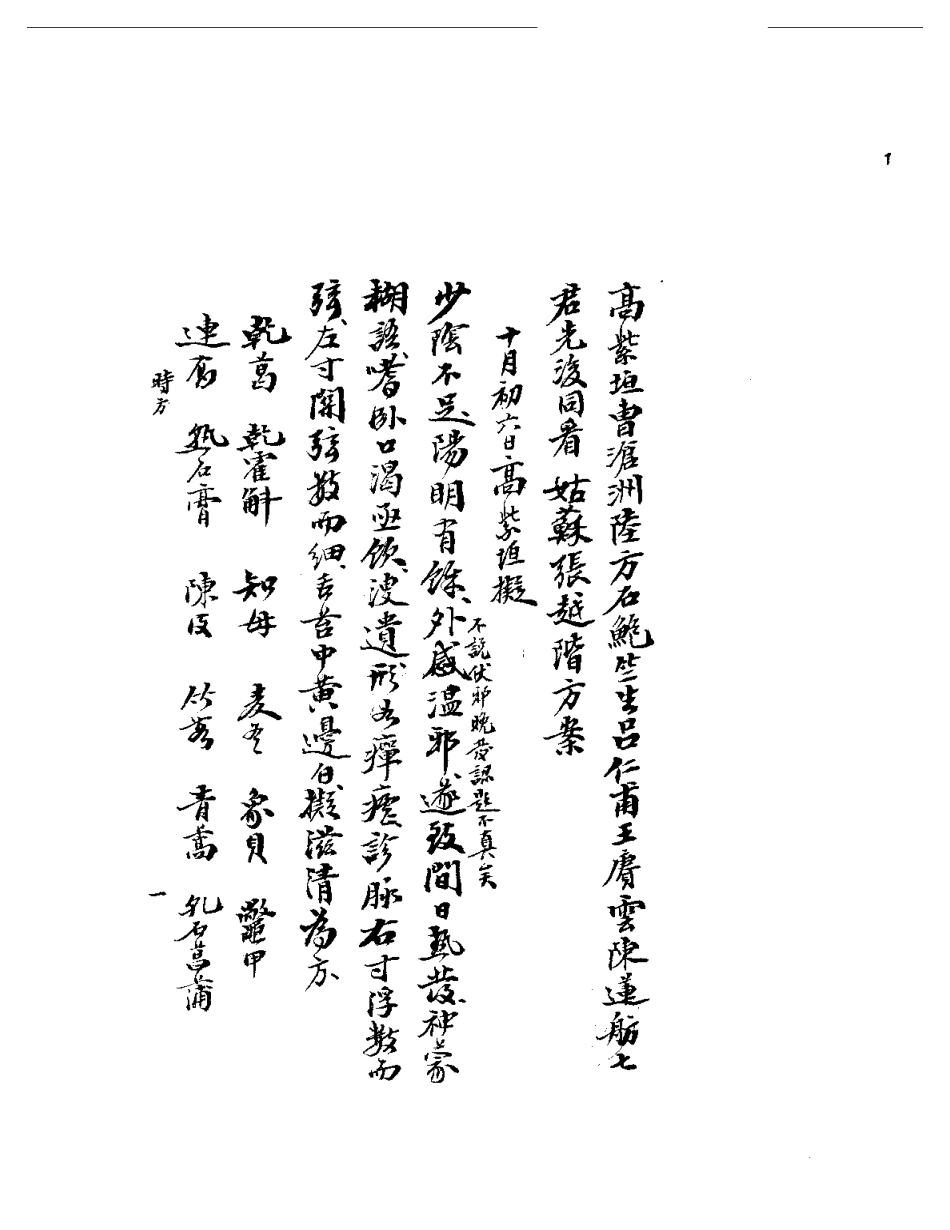 1
高紫垣曹滄洲陸方石鮑竺生呂仁甫王賡雲陳蓮舫七
君先後同看 姑蘇張越階方案
十月初六日高紫垣擬
不説伏邪晚發認題不真矣
少陰不足、陽明有餘、外感温邪遂致間日熱發、神蒙
糊語嗜卧口渴亟飲、溲遺形如癉瘧、診脉右寸浮数而
弦、左寸関弦数而細、舌苔中黄邊白、擬滋清為方、
乾葛 乾霍斛 知母 麦冬 象貝 鱉甲
連翹 熟石膏 陳皮 竹茹 青蒿 九石菖蒲
時方
一